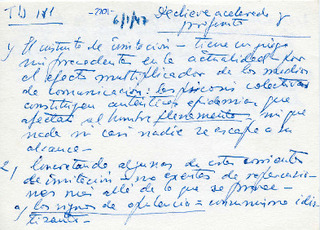 TD III 6/1/87 Declive acelerado y
profundo
1) El instinto de imitación — tiene un juego
sin precedentes en la actualidad por
el efecto multiplicador de los medios
de comunicación: las psicosis colectivas
constituyen auténticas epidemias que
afectan al hombre plenamente, sin que
nada ni casi nadie se escape a su
alcance—
2) Concretando algunas de estas corrientes
de imitación — no exentas de repercusio-
nes más allá de lo que se prevee—
a) los signos de opulencia = consumismo idio-
tizante—